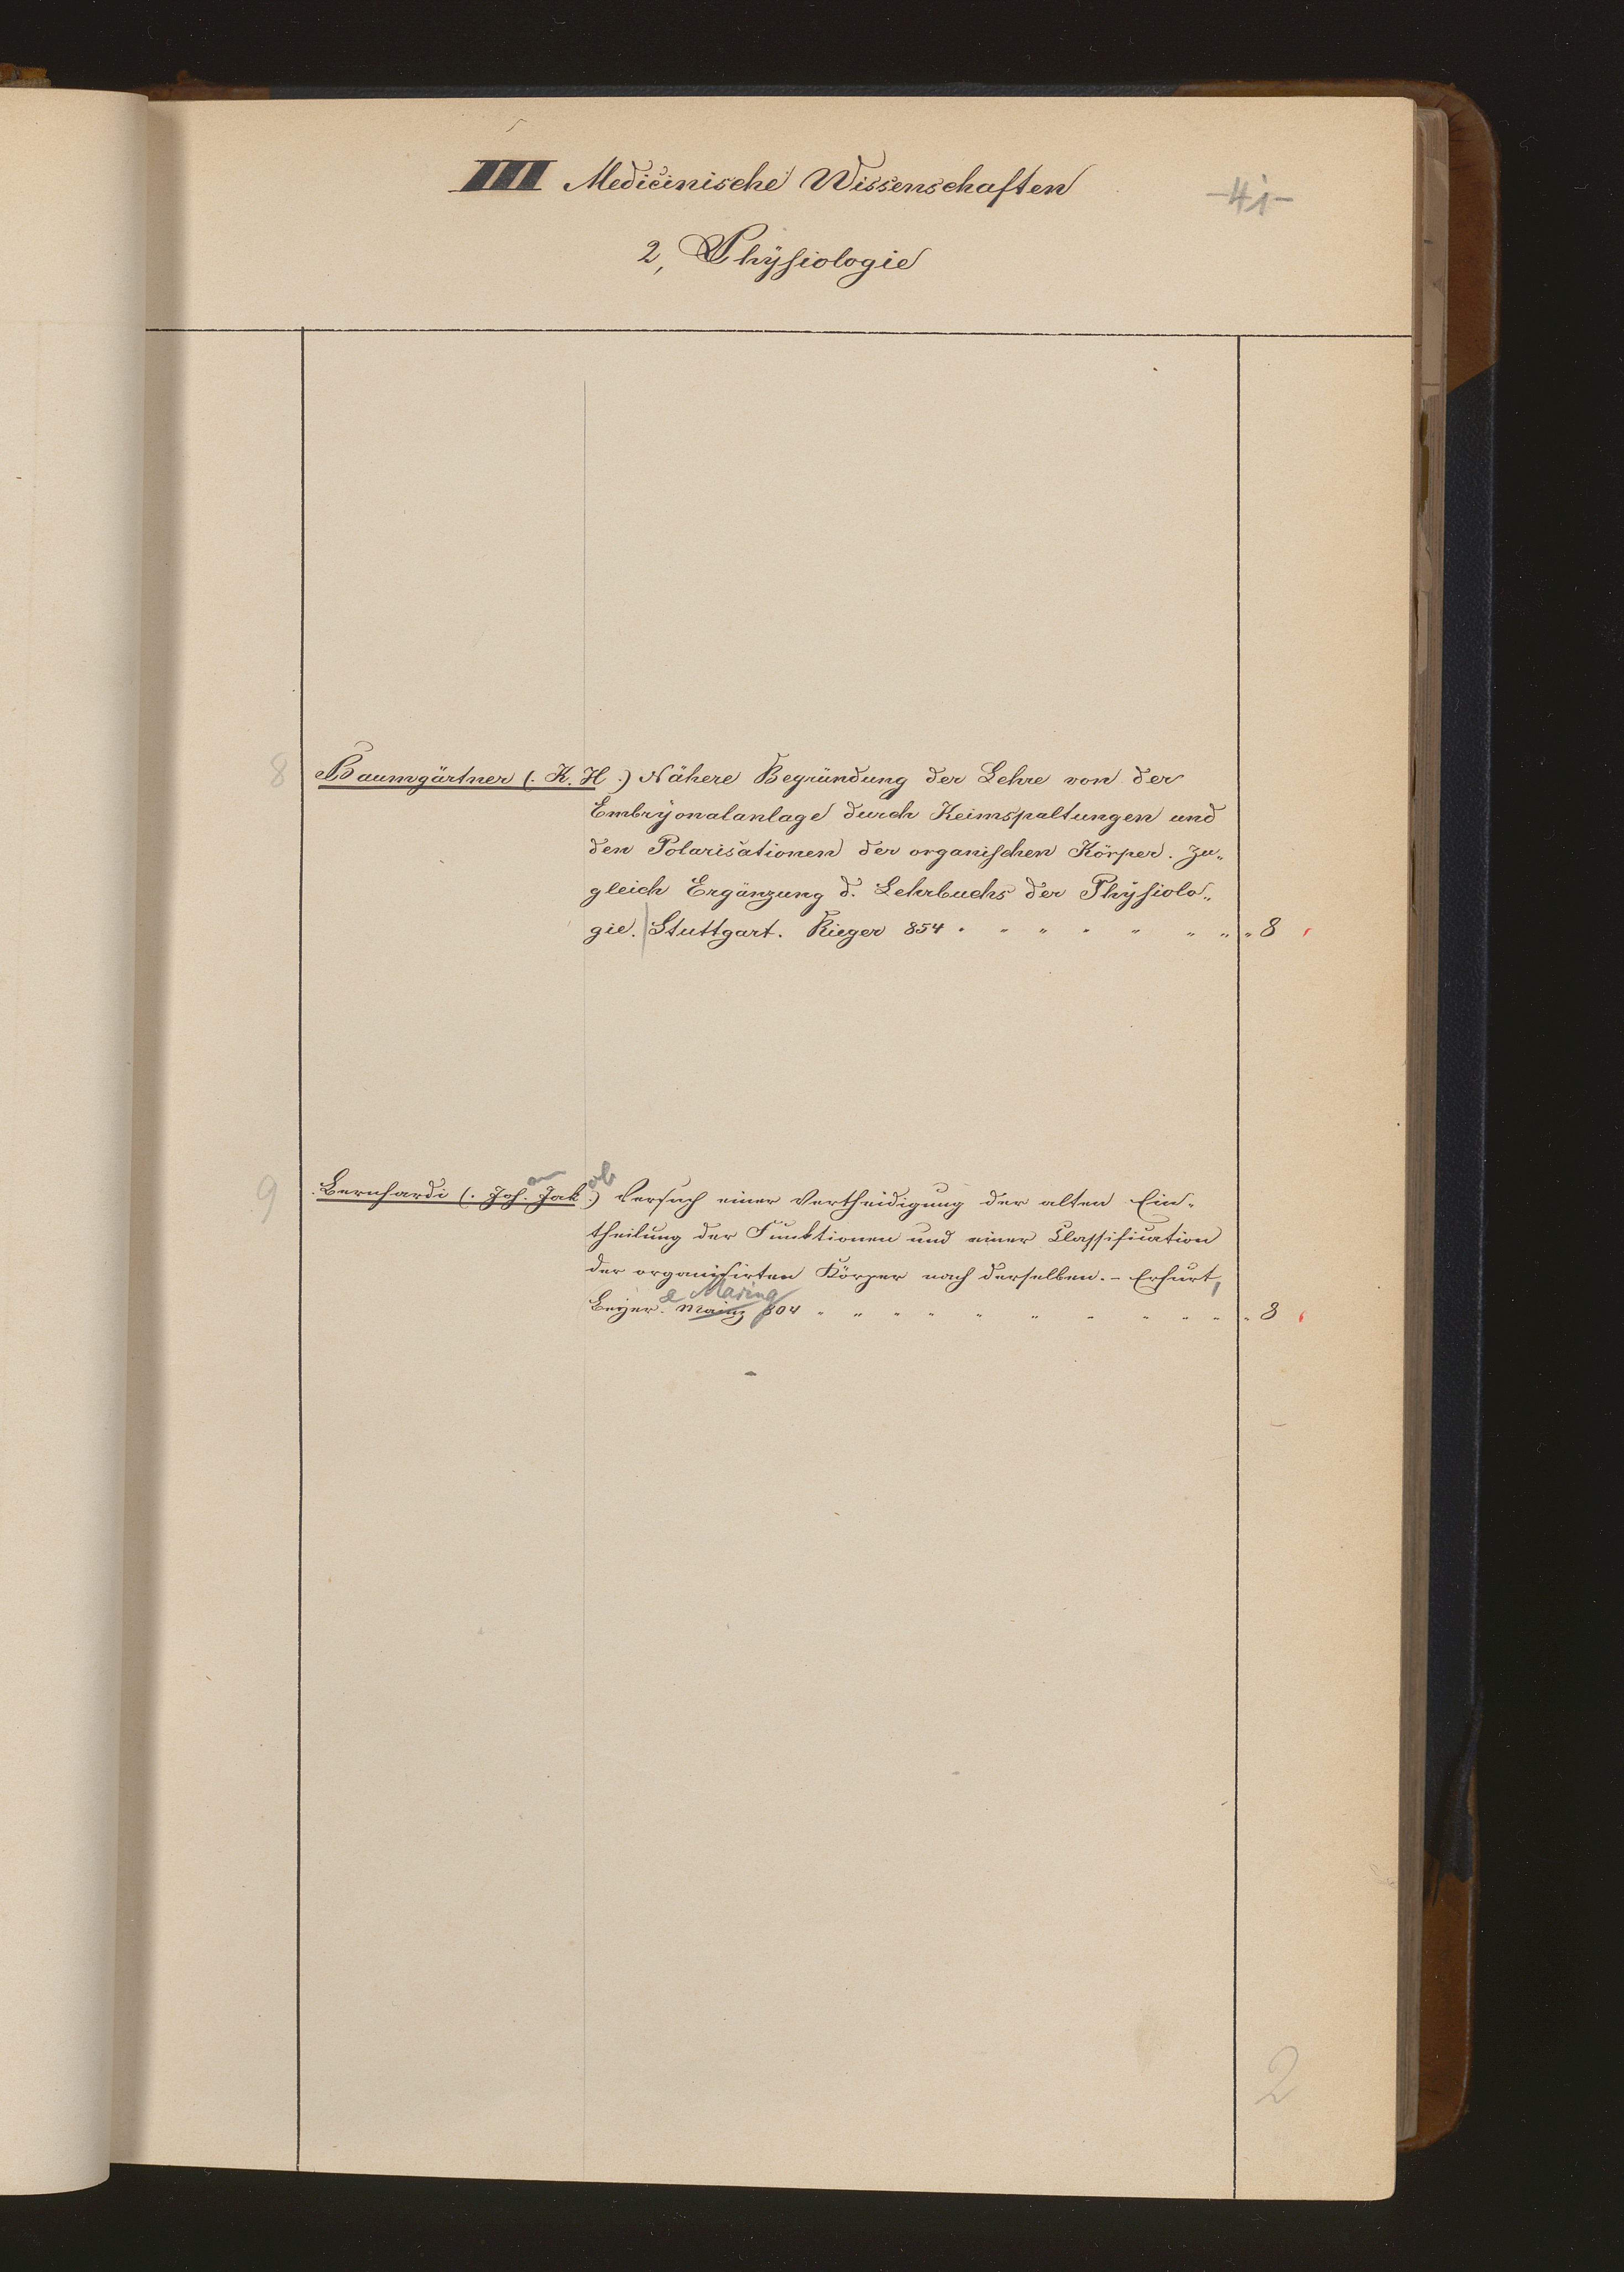 III Medicinische Wissenschaften
-41-
2, Physiologie
8 Baumgärtner (. K. H .) Nähere Begründung der Lehre von der
Embryonalanlage durch Keimspaltungen und
den Polarisationen der organischen Körper. Zu„
gleich Ergänzung d. Lehrbuchs der Physiolo„
gie. Stuttgart. Rieger 854 „ „ „ „ „ „ „ „ 8
an ob
9 Bernhardi (. Joh. Jak .) Versuch einer Vertheidigung der alten Ein„
theilung der Funktionen und einer Classification
der organisirten Körper nach derselben. - Erfurt,
& Maring
Beyer. Mainz 804 „ „ „ „ „ „ „ „ „ „ „ „ 8
2